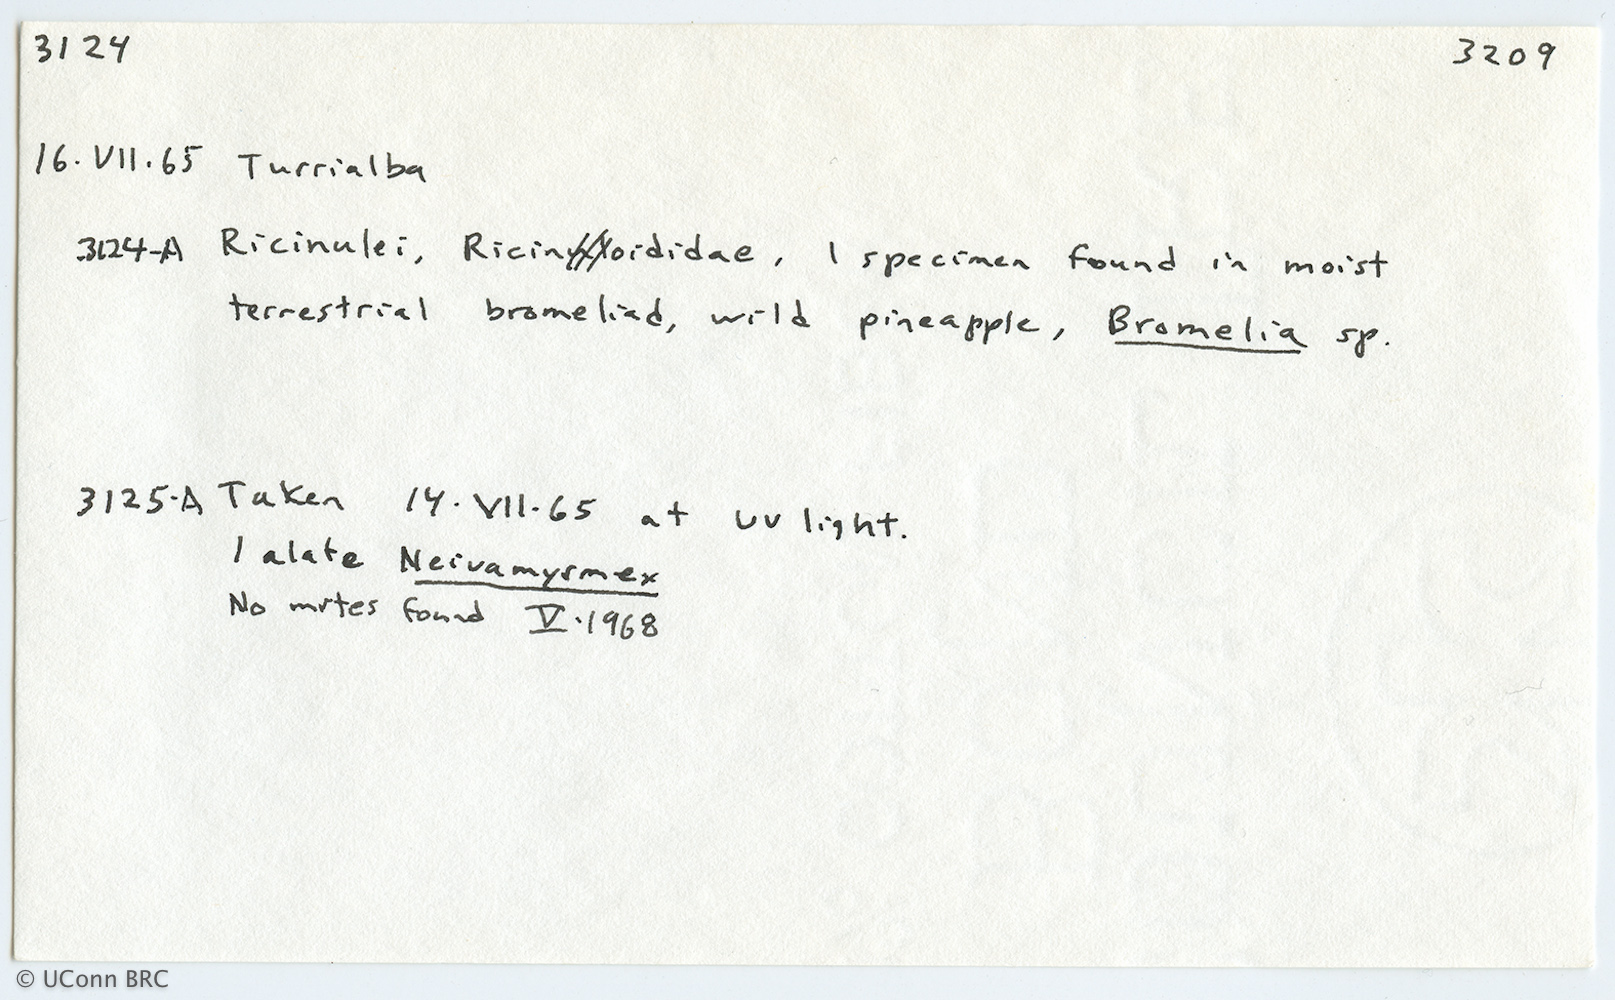 3124 3209
16.VII.65 Turrialba
3124-A Ricinulei, Ricinoididae, 1 specimen found in moist
terrestrial bromeliad, wild pineapple, Bromelia sp.
3125-A Taken 14.VII.65 at UV light.
1 alate Neivamyrmex
No mites found V.1968
© UConn BRC